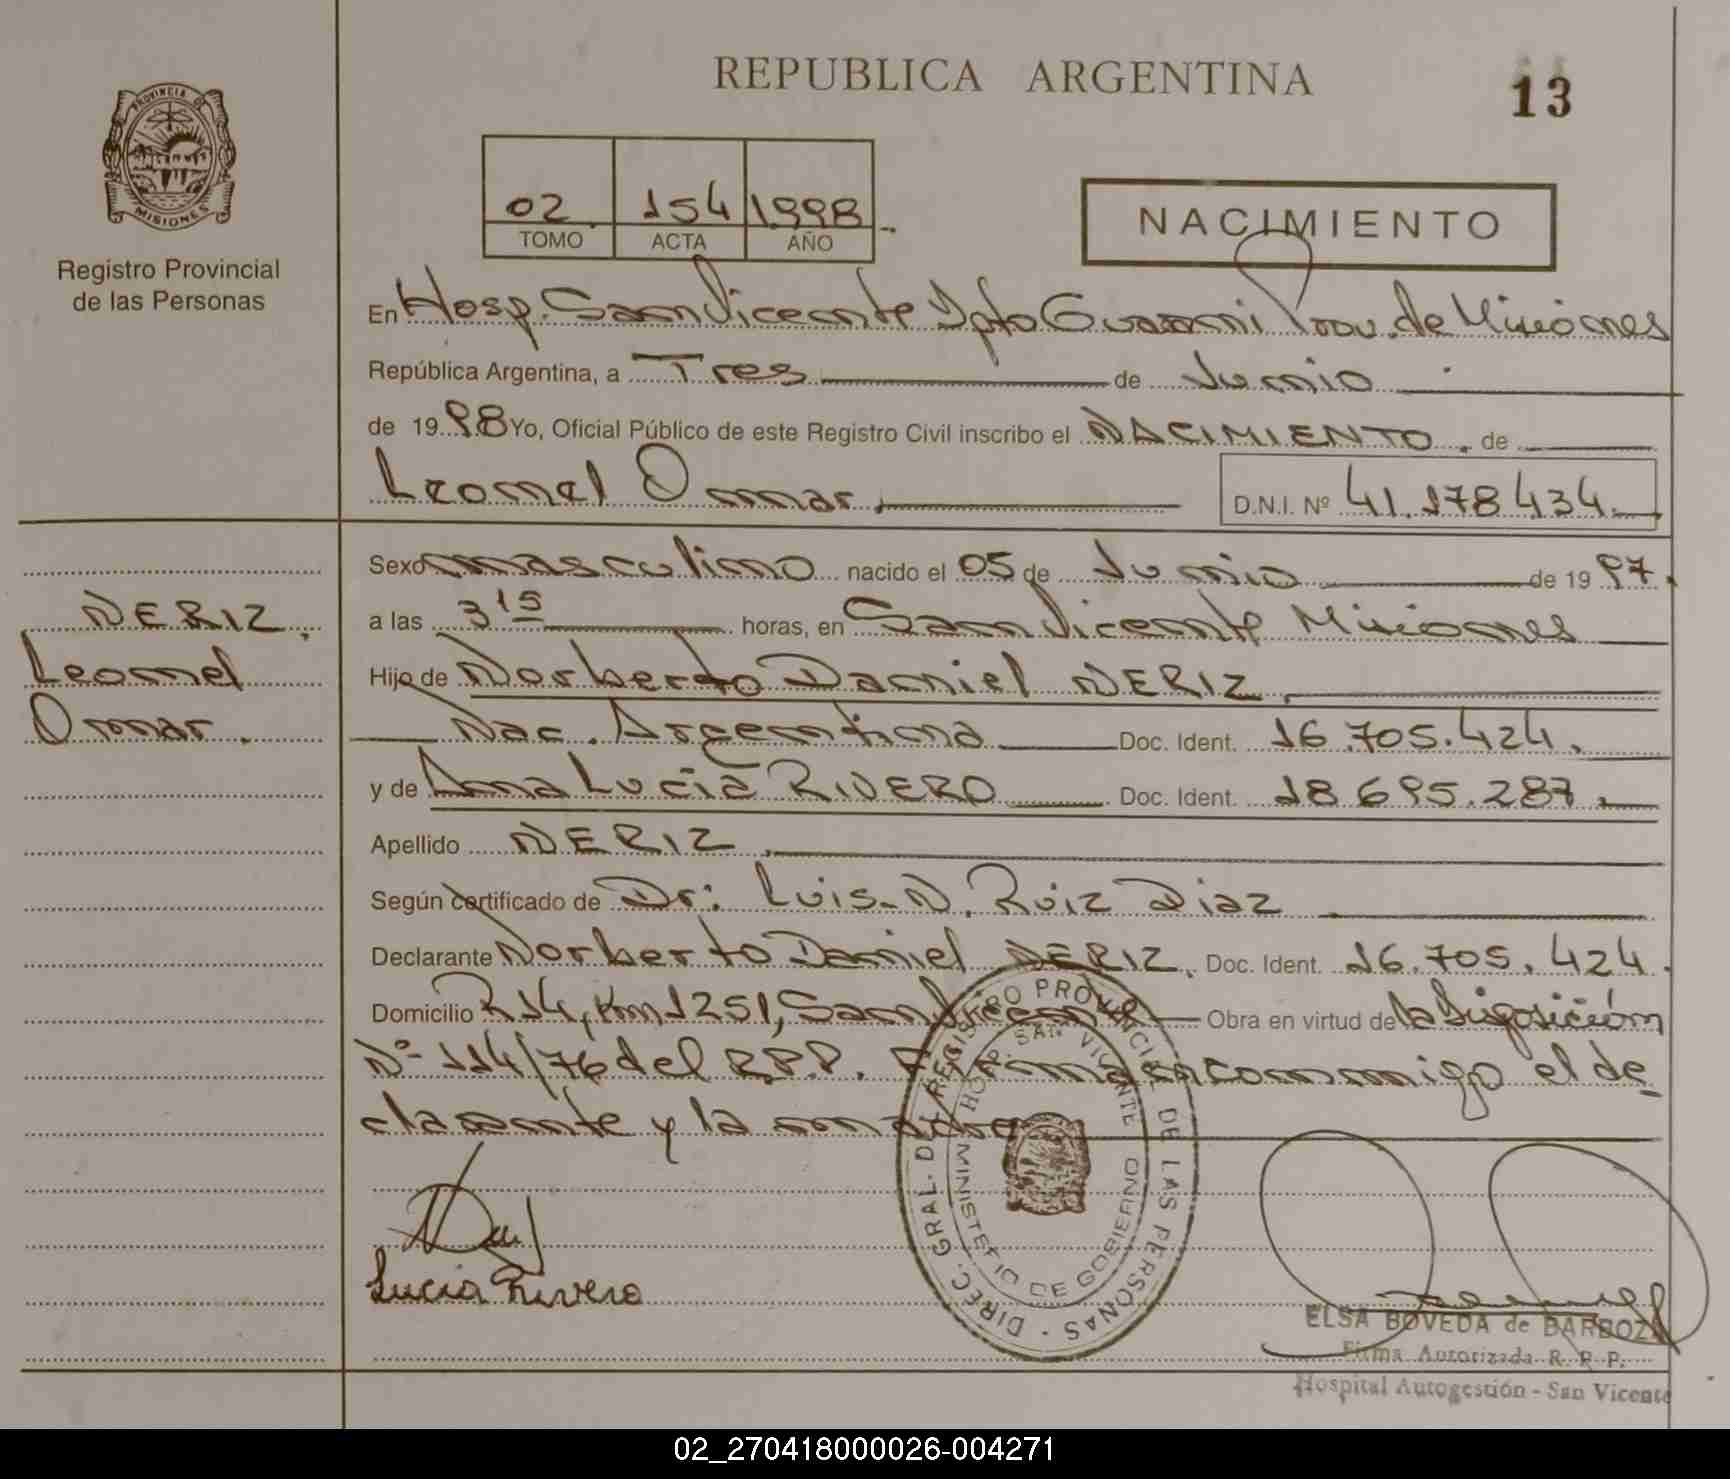 REPUBLICA ARGENTINA
13
PROVINCIA DE
MISIONES
Registro Provincial
de las Personas
02 154 1998
TOMO ACTA AÑO
NACIMIENTO
En Hosp. San Vicente Dpto Guarani Prov. de Misiones
República Argentina, a Tres de Junio
de 1998 Yo, Oficial Público de este Registro Civil inscribo el NACIMIENTO. de
Leonel Omar D.N.I. Nº 41.178434.
Sexo masculino nacido el 05 de Junio de 1997.
NERIZ,
a las 3 15 horas, en San Vicente Misiones
Leonel
Hijo de Norberto Daniel NERIZ
Omar.
Nac. Argentina Doc. Ident. 16.705.424.
y de Ana Lucia RIVERO Doc. Ident. 18695.287.
Apellido NERIZ
Según certificado de Dr: Luis N. Ruiz Diaz
Declarante Norberto Daniel NERIZ, Doc. Ident. 16.705.424.
Domicilio R14, Km 1251, San Vicente Obra en virtud de la Disposición
Nº 114/76 del R.P.P. Firman conmigo el de
clarante y la madre
DIREC. GRAL. DEL REGISTRO PROVINCIAL DE LAS PERSONAS
HOSP. SAN VICENTE
MINISTERIO DE GOBIERNO
Lucia Rivero
ELSA BOVEDA de BARBOZA
Firma Autorizada R. P. P.
Hospital Autogestión - San Vicente
02_270418000026-004271